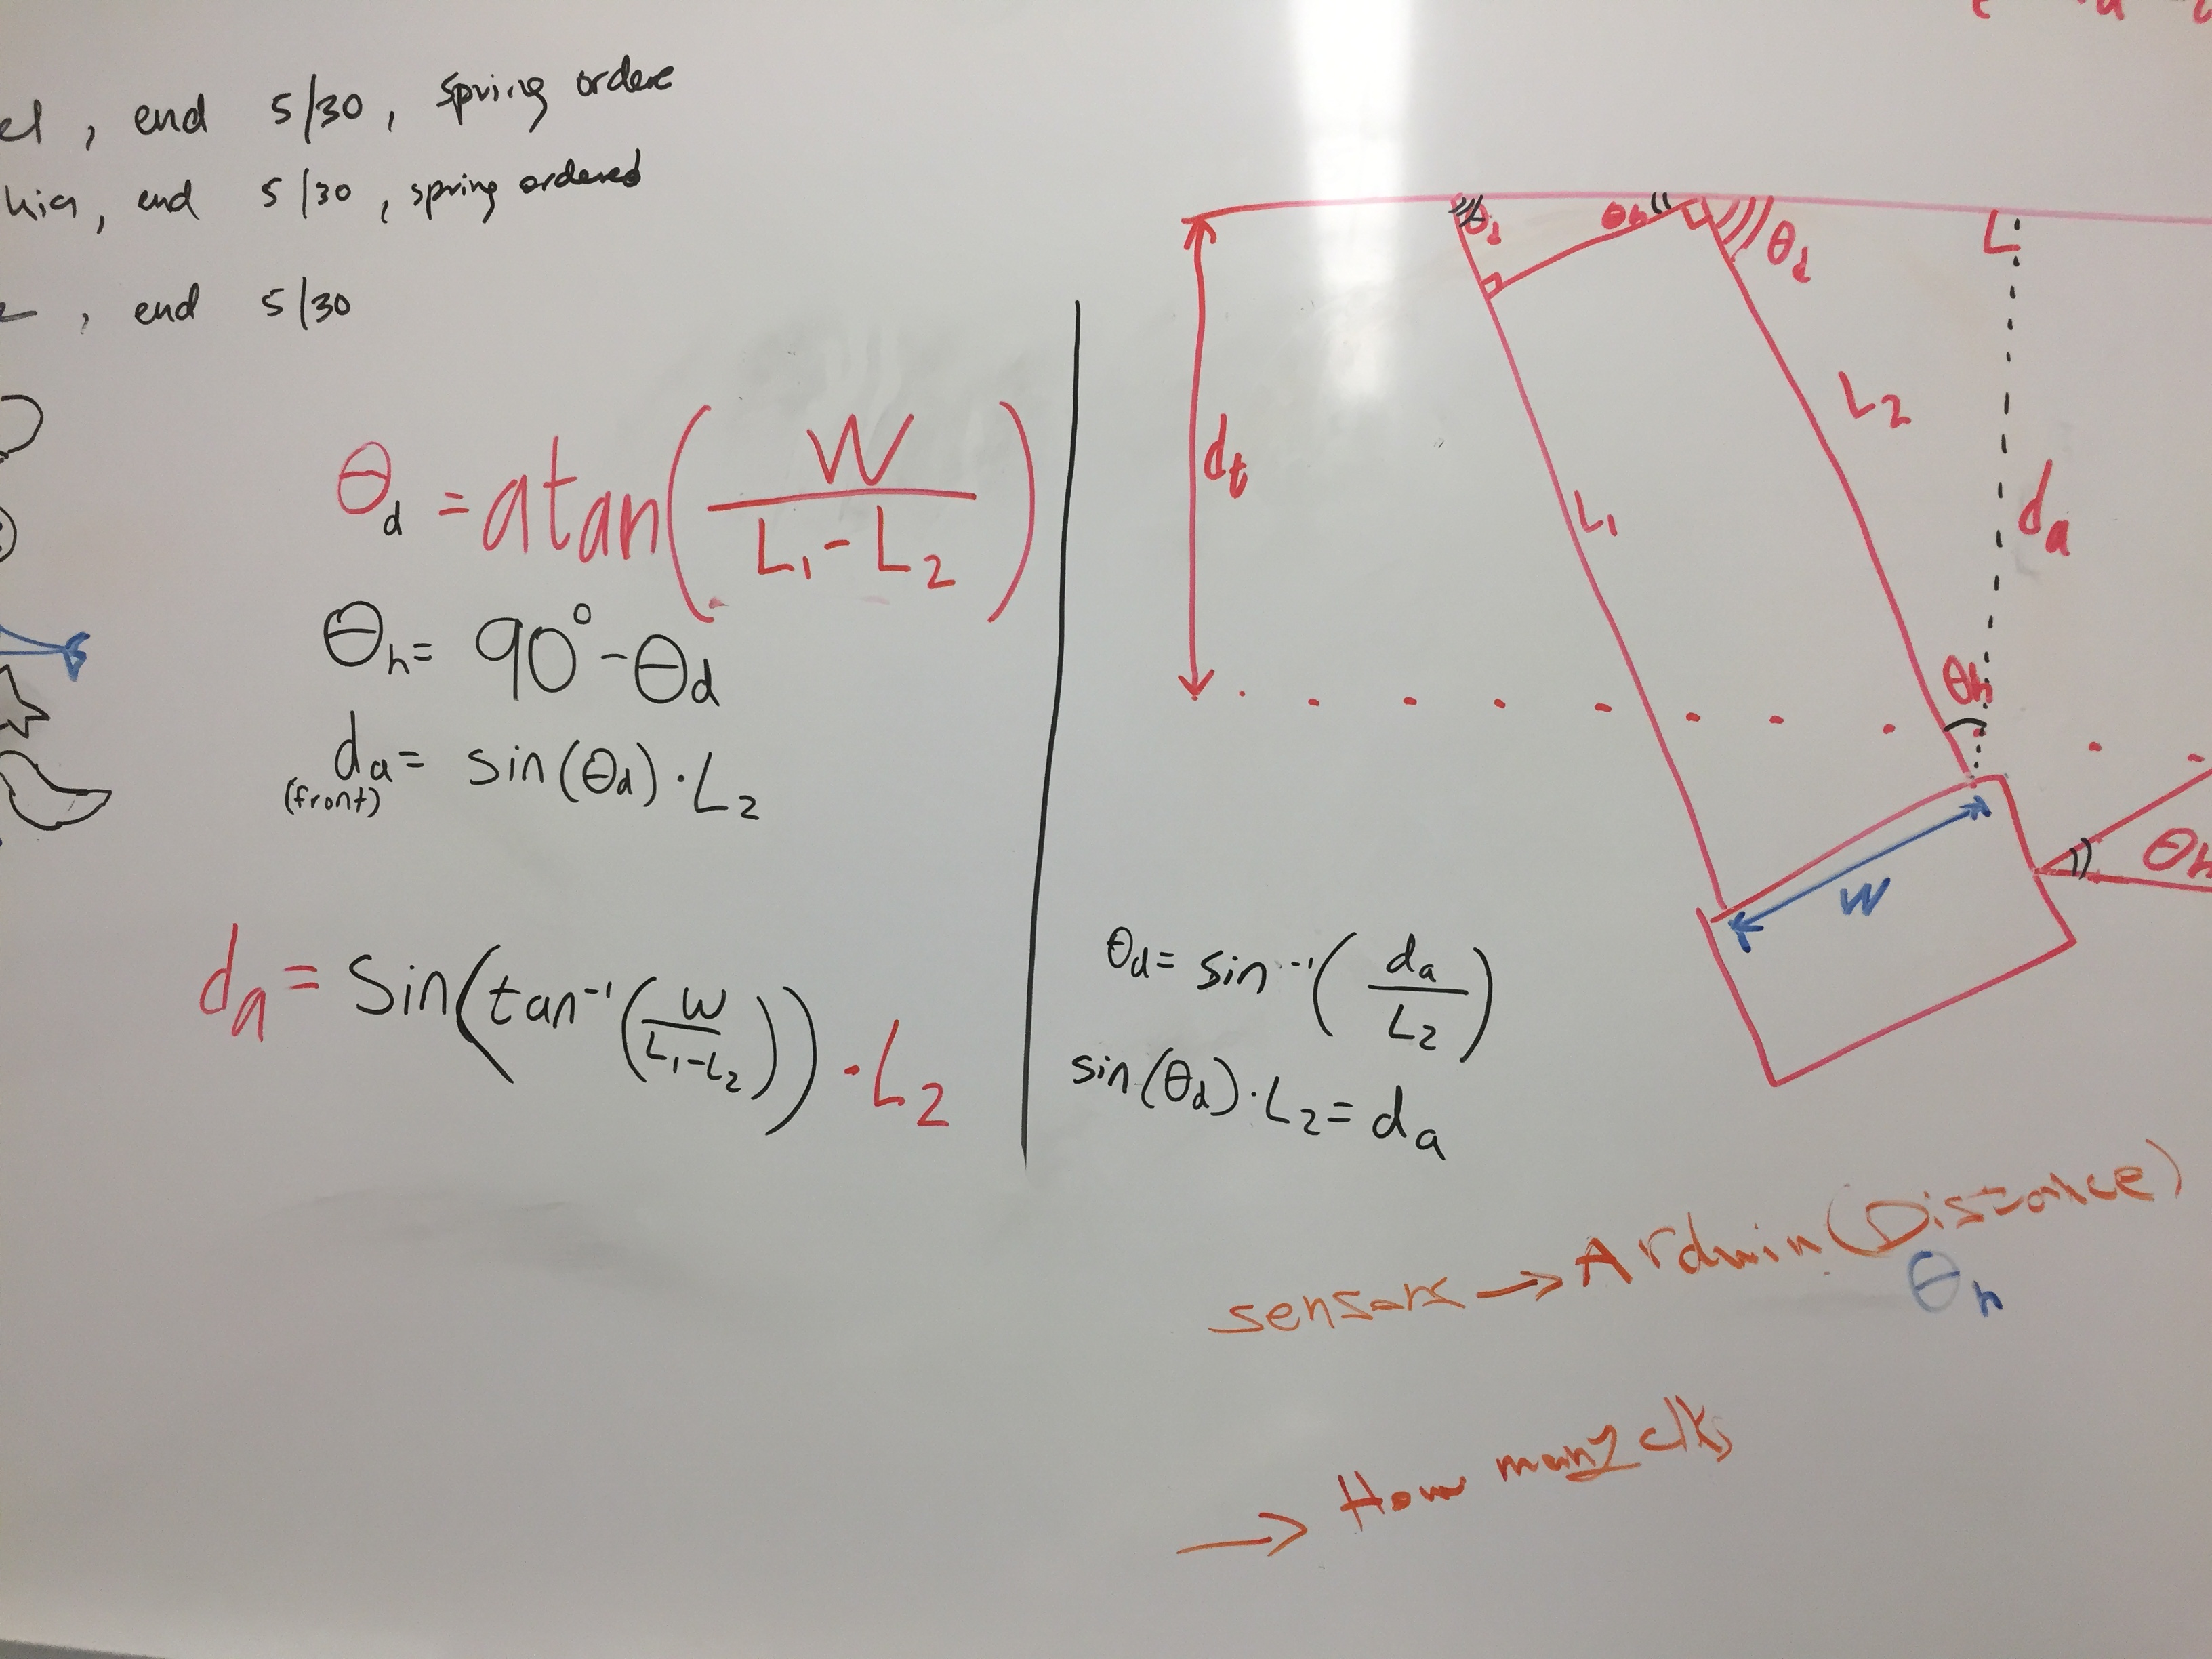 , end 5/30, spring ordere
, end 5/30, spring ordered
, end 5/30
θd = atan(W / (L1 - L2))
θh = 90° - θd
da = sin(θd) · L2
(front)
da = Sin(tan⁻¹(W / (L1-L2))) · L2
θd
θh
θd
L
dt
L2
L1
da
θh
W
θh
θd = sin⁻¹(da / L2)
sin(θd) · L2 = da
sensors → Arduin (Distance)
θh
→ How many clks